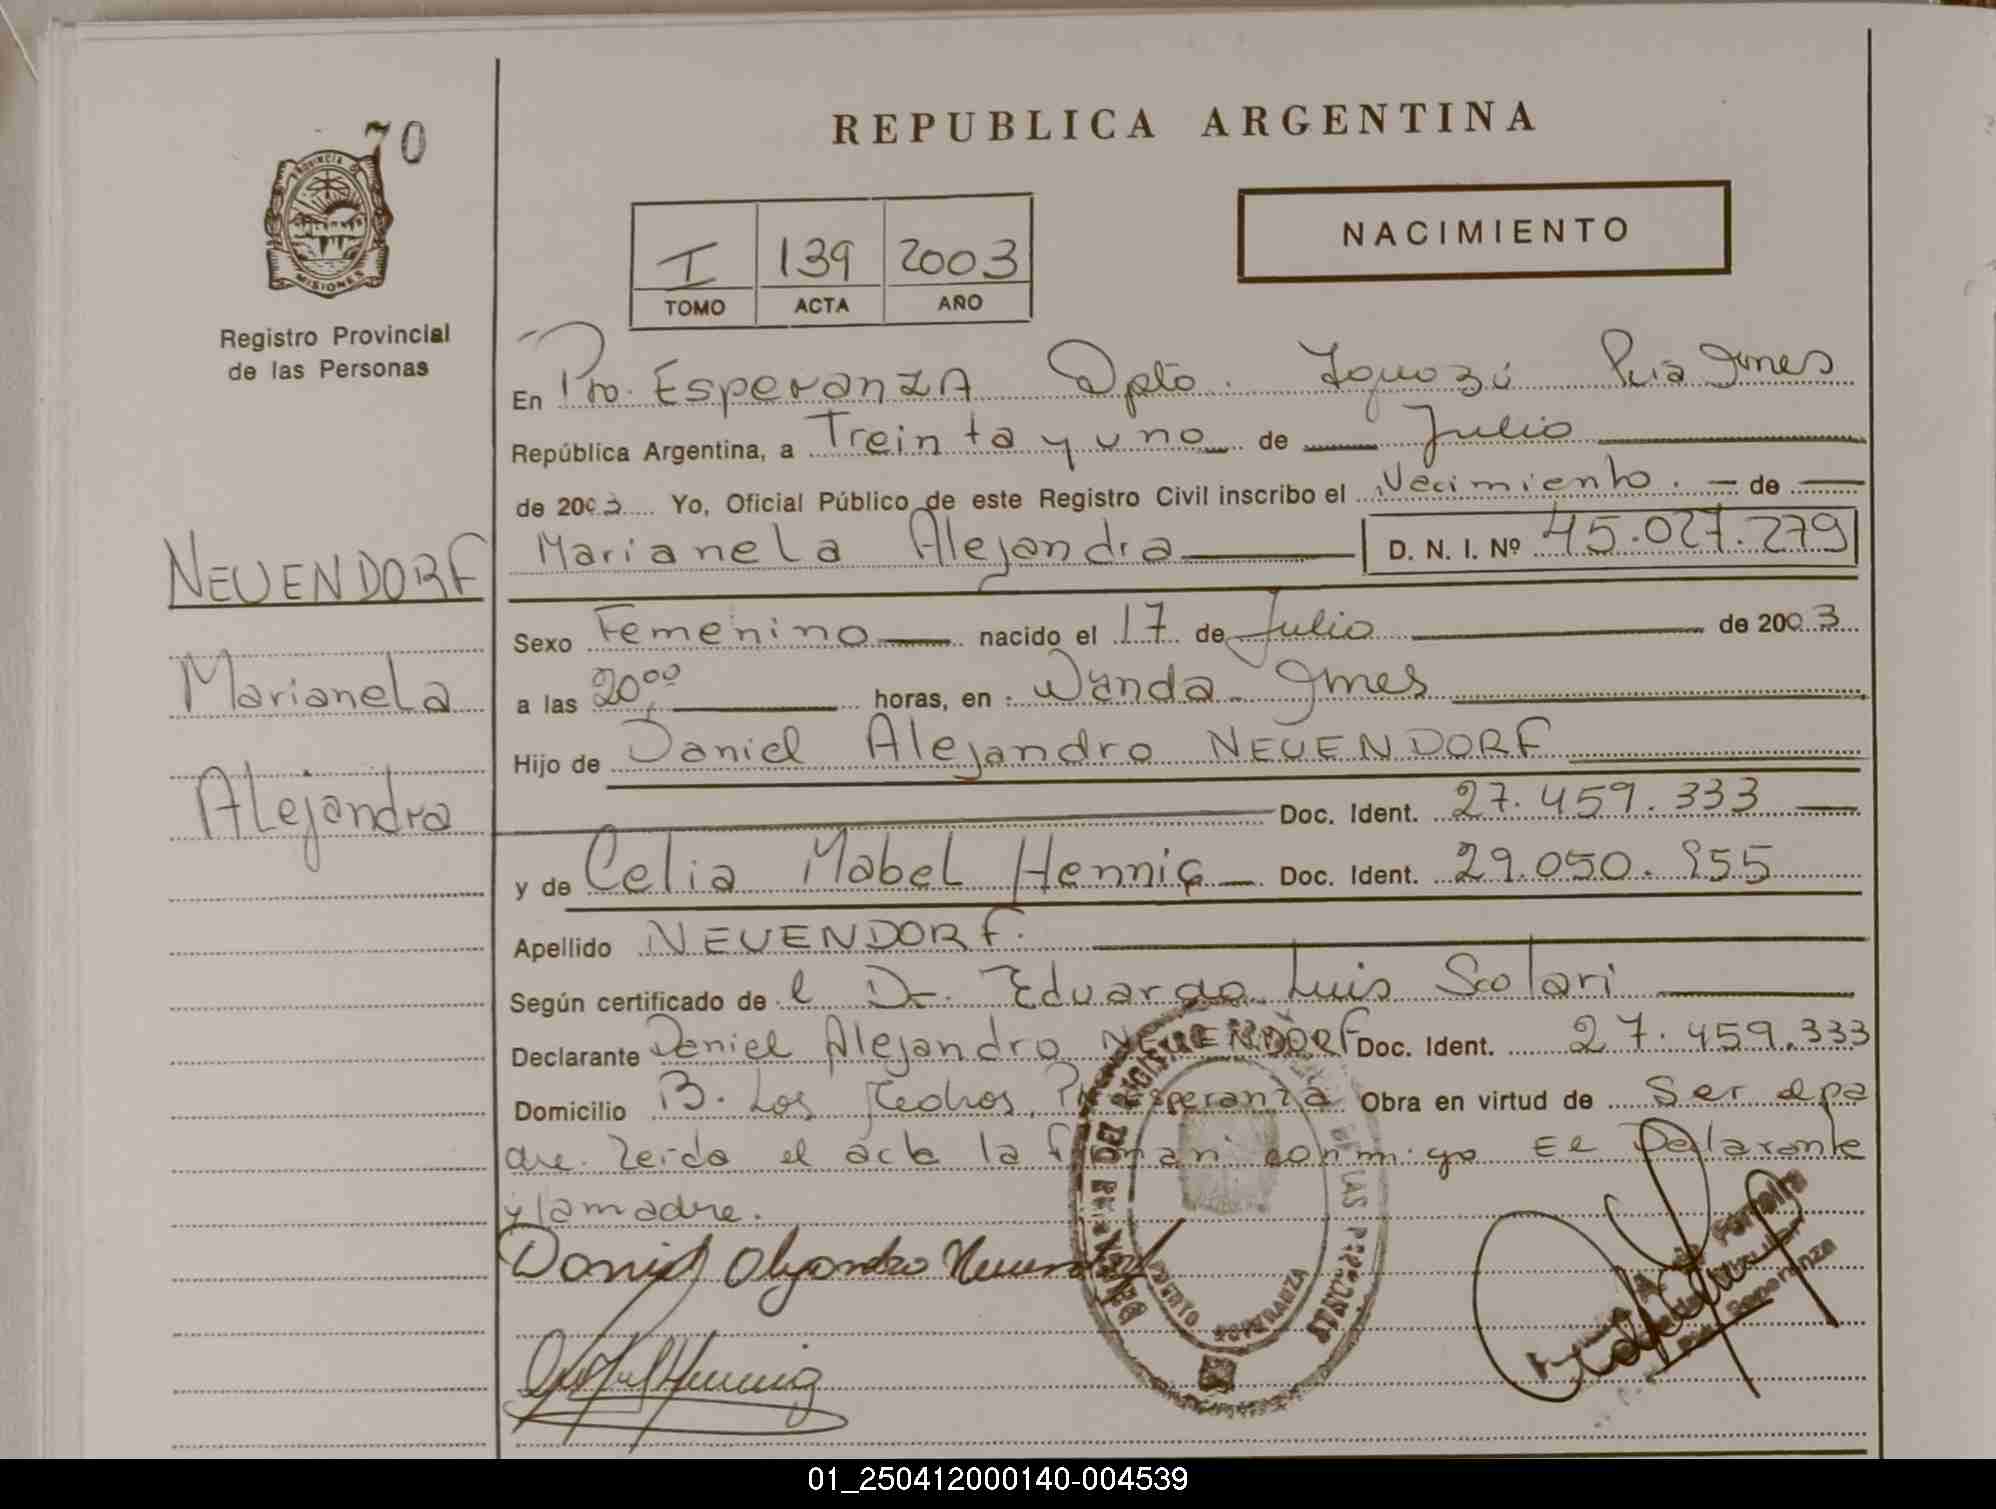 70
PROVINCIA DE
MISIONES
Registro Provincial
de las Personas
NEUENDORF
Marianela
Alejandra
REPUBLICA ARGENTINA
I 139 2003
TOMO ACTA AÑO
NACIMIENTO
En Pto. Esperanza Dpto. Iguazú Pcia Mnes
República Argentina, a Treinta y uno de Julio
de 2003 Yo, Oficial Público de este Registro Civil inscribo el Nacimiento. de
Marianela Alejandra D. N. I. Nº 45.027.279
Sexo Femenino nacido el 17 de Julio de 2003
a las 20,00 horas, en Wanda Mnes
Hijo de Daniel Alejandro NEUENDORF
Doc. Ident. 27.459.333
y de Celia Mabel Hennig Doc. Ident. 29.050.955
Apellido NEUENDORF.
Según certificado de l Dr. Eduardo Luis Scolari
Declarante Daniel Alejandro NEUENDORF Doc. Ident. 27.459.333
Domicilio B. Los Cedros, Pto Esperanza Obra en virtud de Ser el pa
dre. Leida el acta la firman conmigo El Declarante
y la madre.
Daniel Alejandro Neuendorf
Hennig
PUERTO ESPERANZA
Pto. Esperanza
01_250412000140-004539